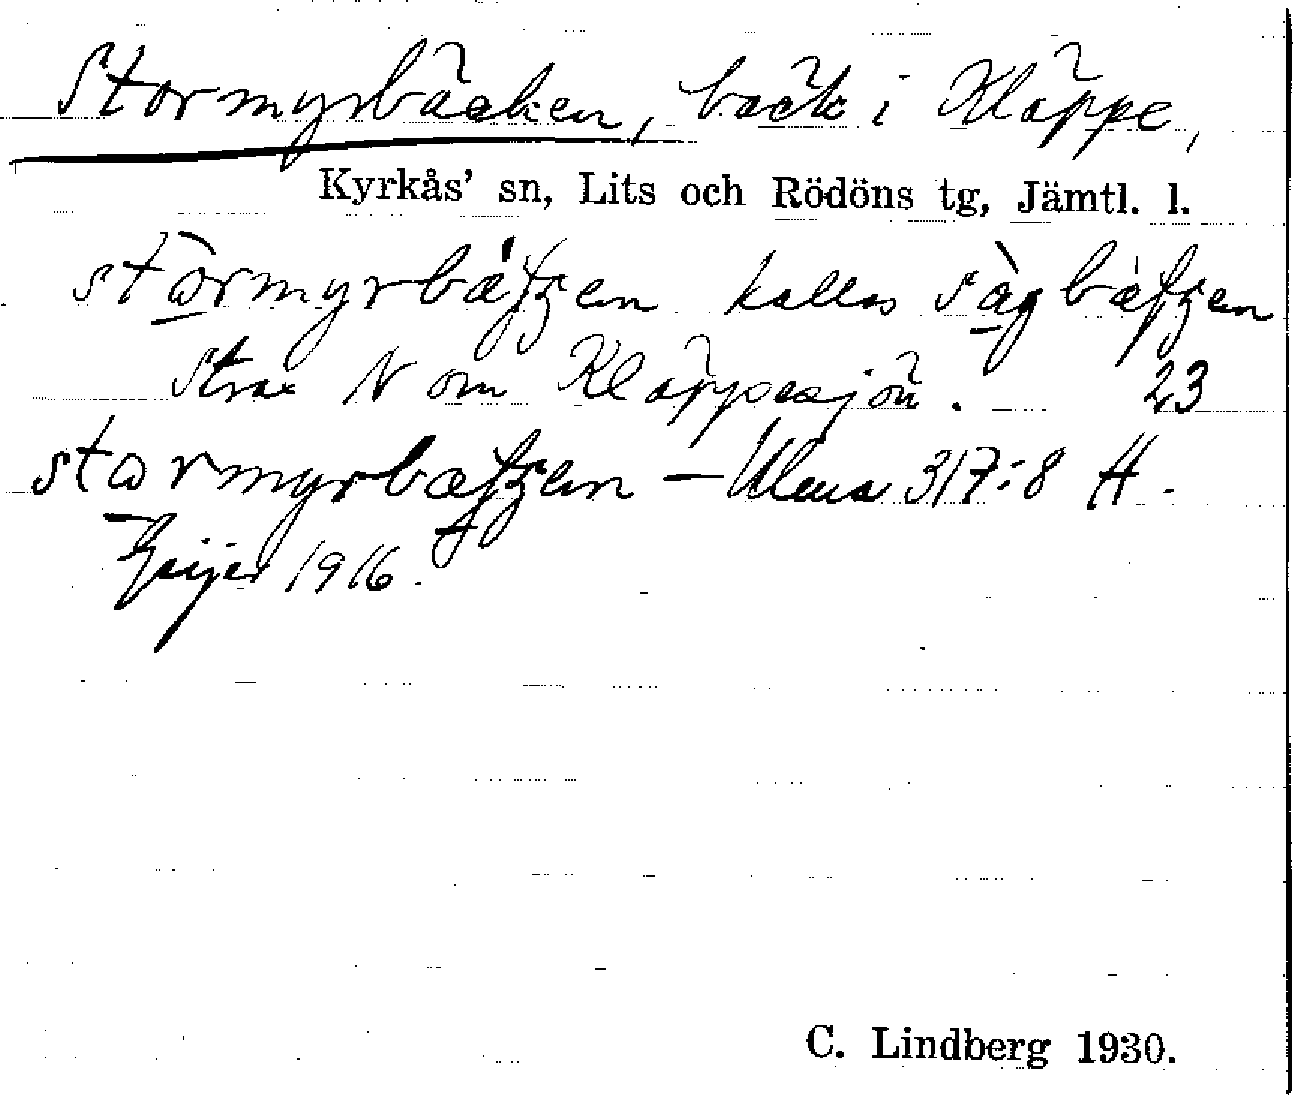 Stormyrbäcken, bäck i Kläppe,
Kyrkås' sn, Lits och Rödöns tg, Jämtl. l.
stòrmyrbä́tʃen kallas sàgbä̀tʃen
strax N om Kläppesjön. 23
stormyrbætʃen – Ulma 317:8 H.
Geijer 1916.
C. Lindberg 1930.